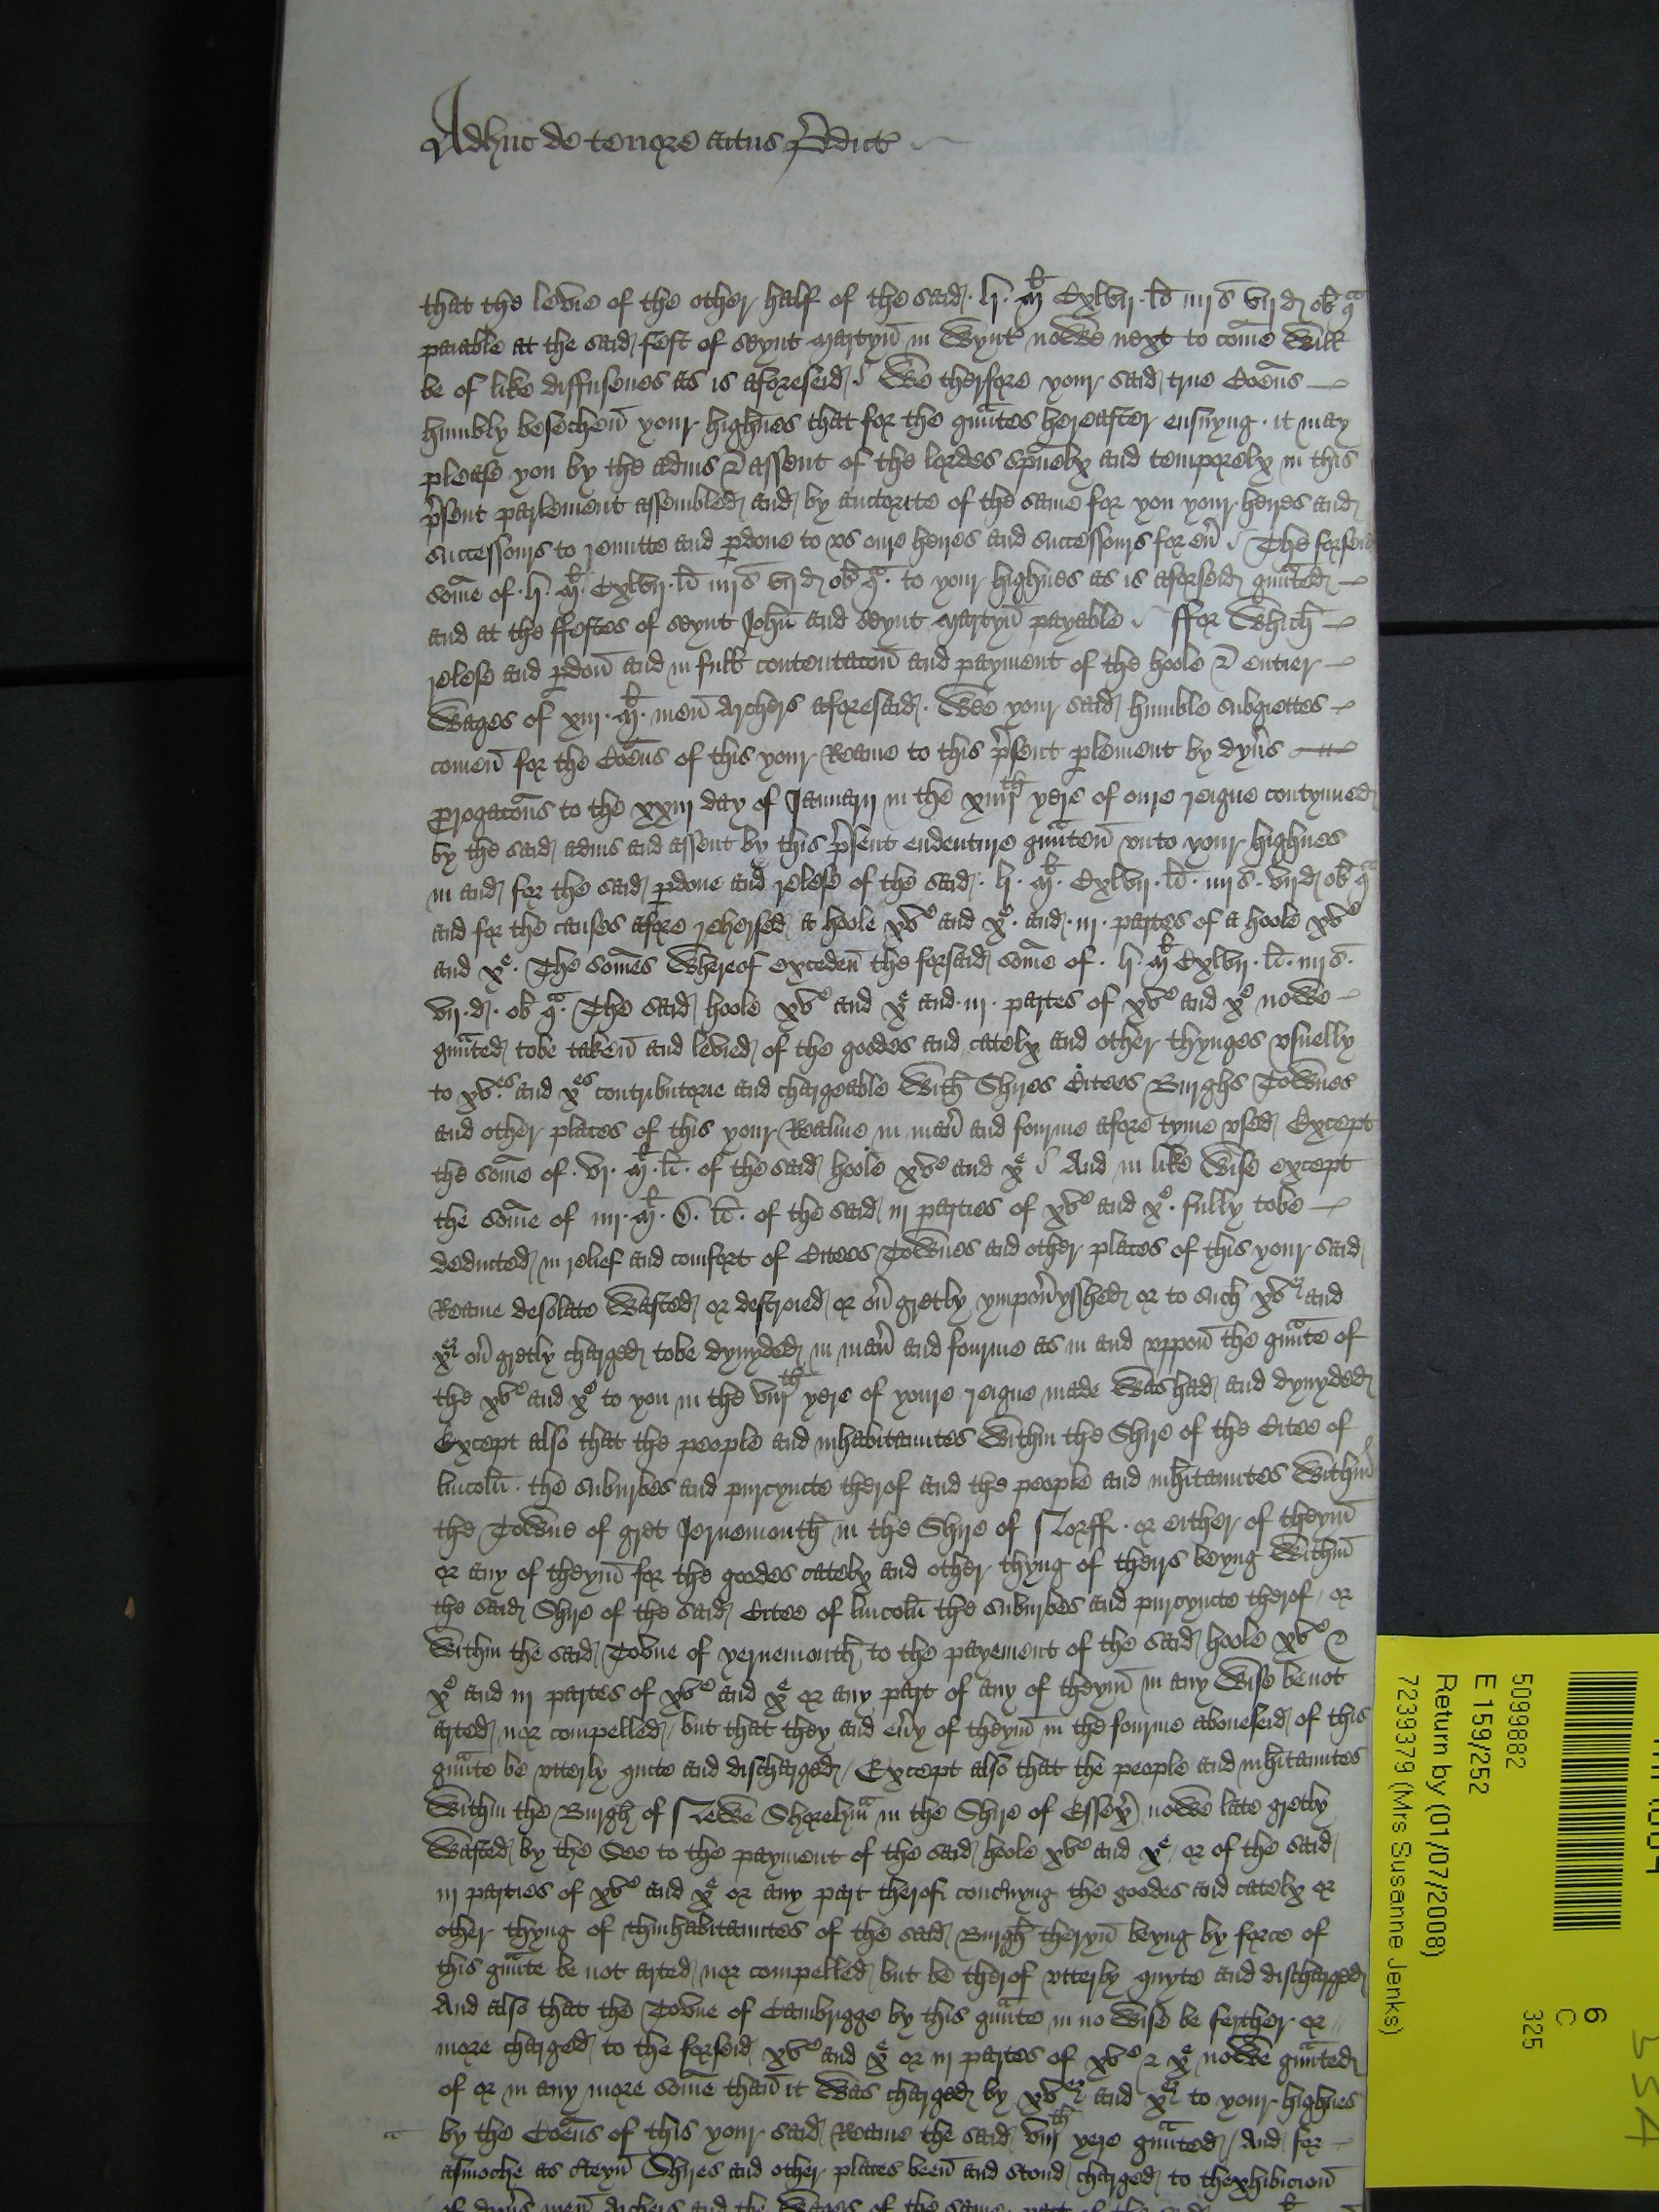 Adhuc de tenore actus p̄dict
that the levie of the other half of the said lj Ml Cxlvij li iiij s vij d ob qa
paiable at the said fest of seynt Martyn̄ in Wynt̄ nowe next to com̄e Will
be of like diffusenes as is aforeseid We therfore your said true Co͞ens
humbly besechen̄ your highnes that for the gūntes hereafter ensuyng it may
please you by the advis & assent of the lordes sp͞uelx and temporelx in this
p̄sent parlement assembled and by auctorite of the same for you your heires and
successours to remitte and p̱done to us oure heires and successours for eū The forseid
som̄e of lj Ml Cxlvij li iiij s vij d ob qa to your highnes as is aforseid gūnted
and at the ffestes of seynt Joh̄n and seynt Martyn̄ payable ffor Which
relese and p̱don̄ and in full contentacon̄ and payment of the hoole & entier
Wages of xiij Ml men̄ Archers aforesaid Wee your said humble subgiettes
comen̄ for the Co͞ens of this your Reame to this p̄sent p̱lement by dyūs
p̱rogacōns to the xxiij day of Januarij in the xiiijth yere of oure reigne contynued
by the said advis and assent by this p̄sent endenture gūnten̄ unto your highnes
in and for the said p̱done and relese of the said lj Ml Cxlvij li iiij s vij d ob qa
and for the causes afore rehersed a hoole xve and xe and iij partes of a hoole xve
and xe The som̄es Whereof exceden̄ the forsaid som̄e of lj Ml Cxlvij li iiij s
vij d ob qa The said hoole xve and xe and iij partes of xve and xe nowe
gūnted tobe taken̄ and levied of the goodes and catelx and other thynges usuelly
to xves and xes contributorie and chargeable With Shires Citees Burghs Townes
and other places of this your Realme in man̄ and fourme afore tyme used Except
the som̄e of vj Ml li of the said hoole xve and xe And in like Wise except
the som̄e of iiij Ml D li of the said iij parties of xve and xe fully tobe
deducted in relief and comfort of Citees Townes and other places of this your said
Reame desolate Wasted or destroied or oū gretly ympoūysshed or to such xve and
xe oū gretly charged tobe dyvyded in man̄ and fourme as in and uppon̄ the gūnte of
the xve and xe to you in the viijth yere of youre reigne made Was had and dyvyded
Except also that the people and inhabitauntes Within the Shire of the Citee of
lincoln̄ the suburbes and purcyncte therof and the people and inh̄itauntes Within̄
the Towne of gret Jernemouth in the Shire of Norff or either of theym̄
or any of theym̄ for the goodes catelx and other thyng of theirs beyng Within̄
the said Shire of the said Citee of lincoln̄ the suburbes and purcyncte therof or
Within the said Towne of yernemouth to the payement of the said hoole xve &
xe and iij partes of xve and xe or any part of any of theym̄ in any Wise be not
arted nor compelled but that they and eūy of theym̄ in the fourme aboveseid of this
gūnte be utterly quite and discharged Except also that the people and inh̄itauntes
Within the Burgh of Newe Shorehm̄ in the Shire of Essex nowe late gretly
Wasted by the See to the payment of the said hoole xve and xe or of the said
iij parties of xve and xe or any part therof conc̄nyng the goodes and catelx or
other thyng of thinhabitauntes of the said Burgh theryn̄ beyng by force of
this gūnte be not arted nor compelled but be therof utterly quyte and discharged
And also that the Towne of Cambrigge by this gūnte in no Wise be ferther or
more charged to the forseid xve and xe or iij partes of xve & xe nowe gūnted
of or in any more som̄e than̄ it Was charged by xve and xe to your highnes
by the Co͞ens of this your said Reame the said viijth yere gūnted And for
asmoche as c̄teyn̄ Shires and other places been̄ and stond charged to thexhibicion̄
of dyūs men̄ Archers and the Wages of the same part of the said
509882
E 159/252
Return by (01/07/2008)
7239379 (Mrs Susanne Jenks)
6
C
325